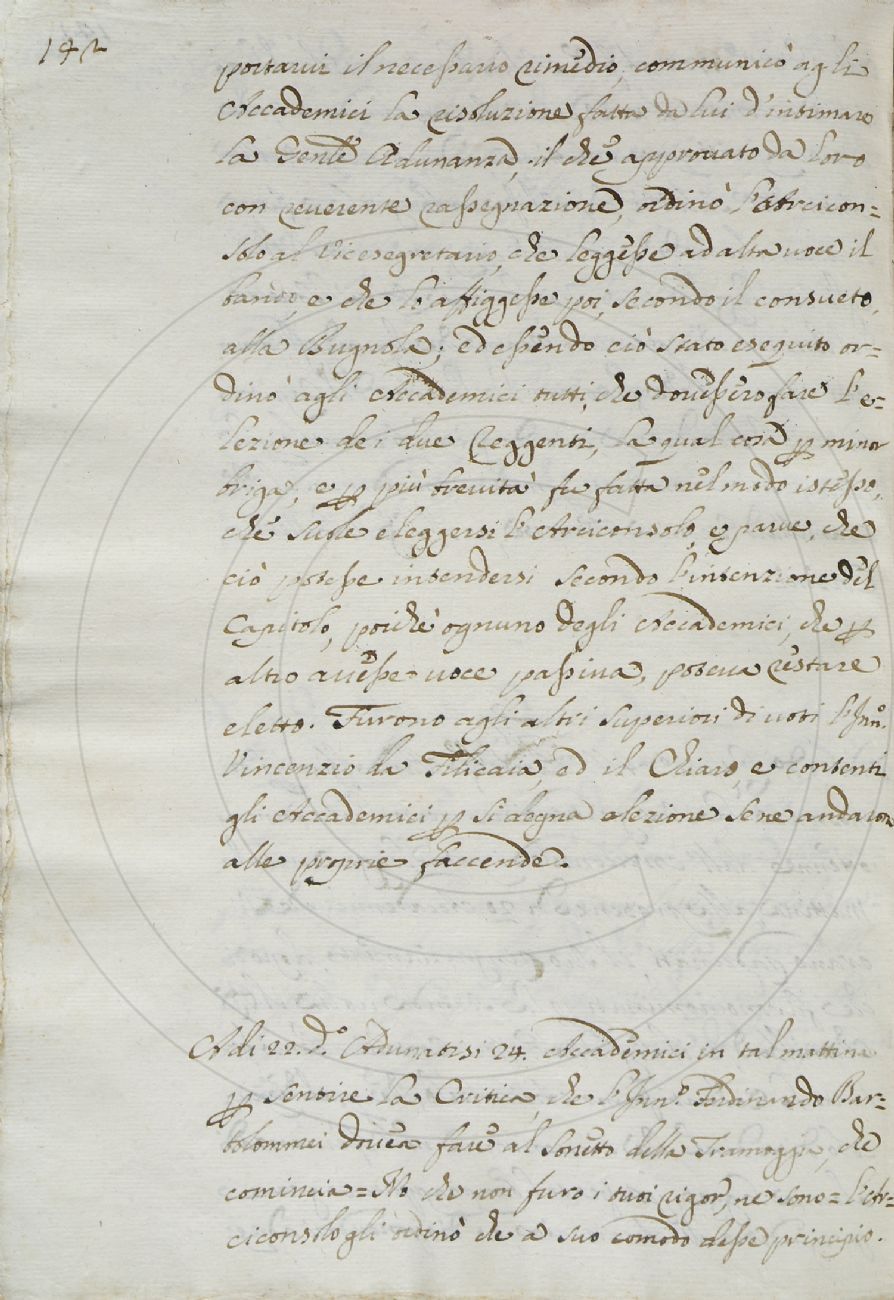 142
portarvi il necessario rimedio, communicò agli
Accademici la risoluzione fatta da lui d'intimare
la Genle Adunanza, il che approvato da loro
con reverente rassegnazione, ordinò l'Arcicon=
solo al Vicesegretario, che leggesse ad alta voce il
bando, e che l'affiggesse poi, secondo il consueto,
alla Bugnola; ed essendo ciò stato eseguito or=
dinò agli Accademici tutti, che dovessero fare l'e=
lezione dei due Reggenti, la qual cosa p minor
briga, e p più brevità fu fatta nel modo istesso,
che suole eleggersi l'Arciconsolo, e parve, che
ciò potesse intendersi secondo l'intenzione del
Capitolo, poichè ognuno degli Accademici, che p
altro avesse voce passiva, poteva restare
eletto. Furono agli altri superiori di voti l'Inno.
Vincenzio da Filicaia, ed il Chiaro, e contenti
gli Accademici p sì degna elezione se ne andaron
alle proprie faccende.
Adi 22. do Adunatisi 24. Accademici in tal mattina
p sentire la Critica, che l'Inno. Ferdinando Bar=
tolommei doveva fare al Sonetto della Tramoggia, che
comincia = No che non furo i tuoi rigor, ne sono = l'Ar=
ciconsolo gli ordinò che a suo comodo desse principio.